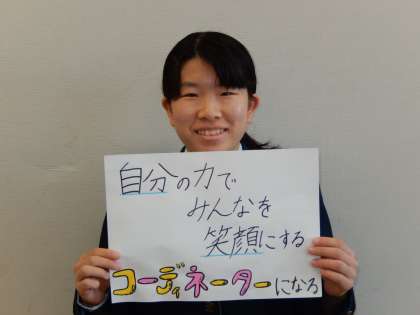 自分の力で
みんなを
笑顔にする
コーディネーターになる